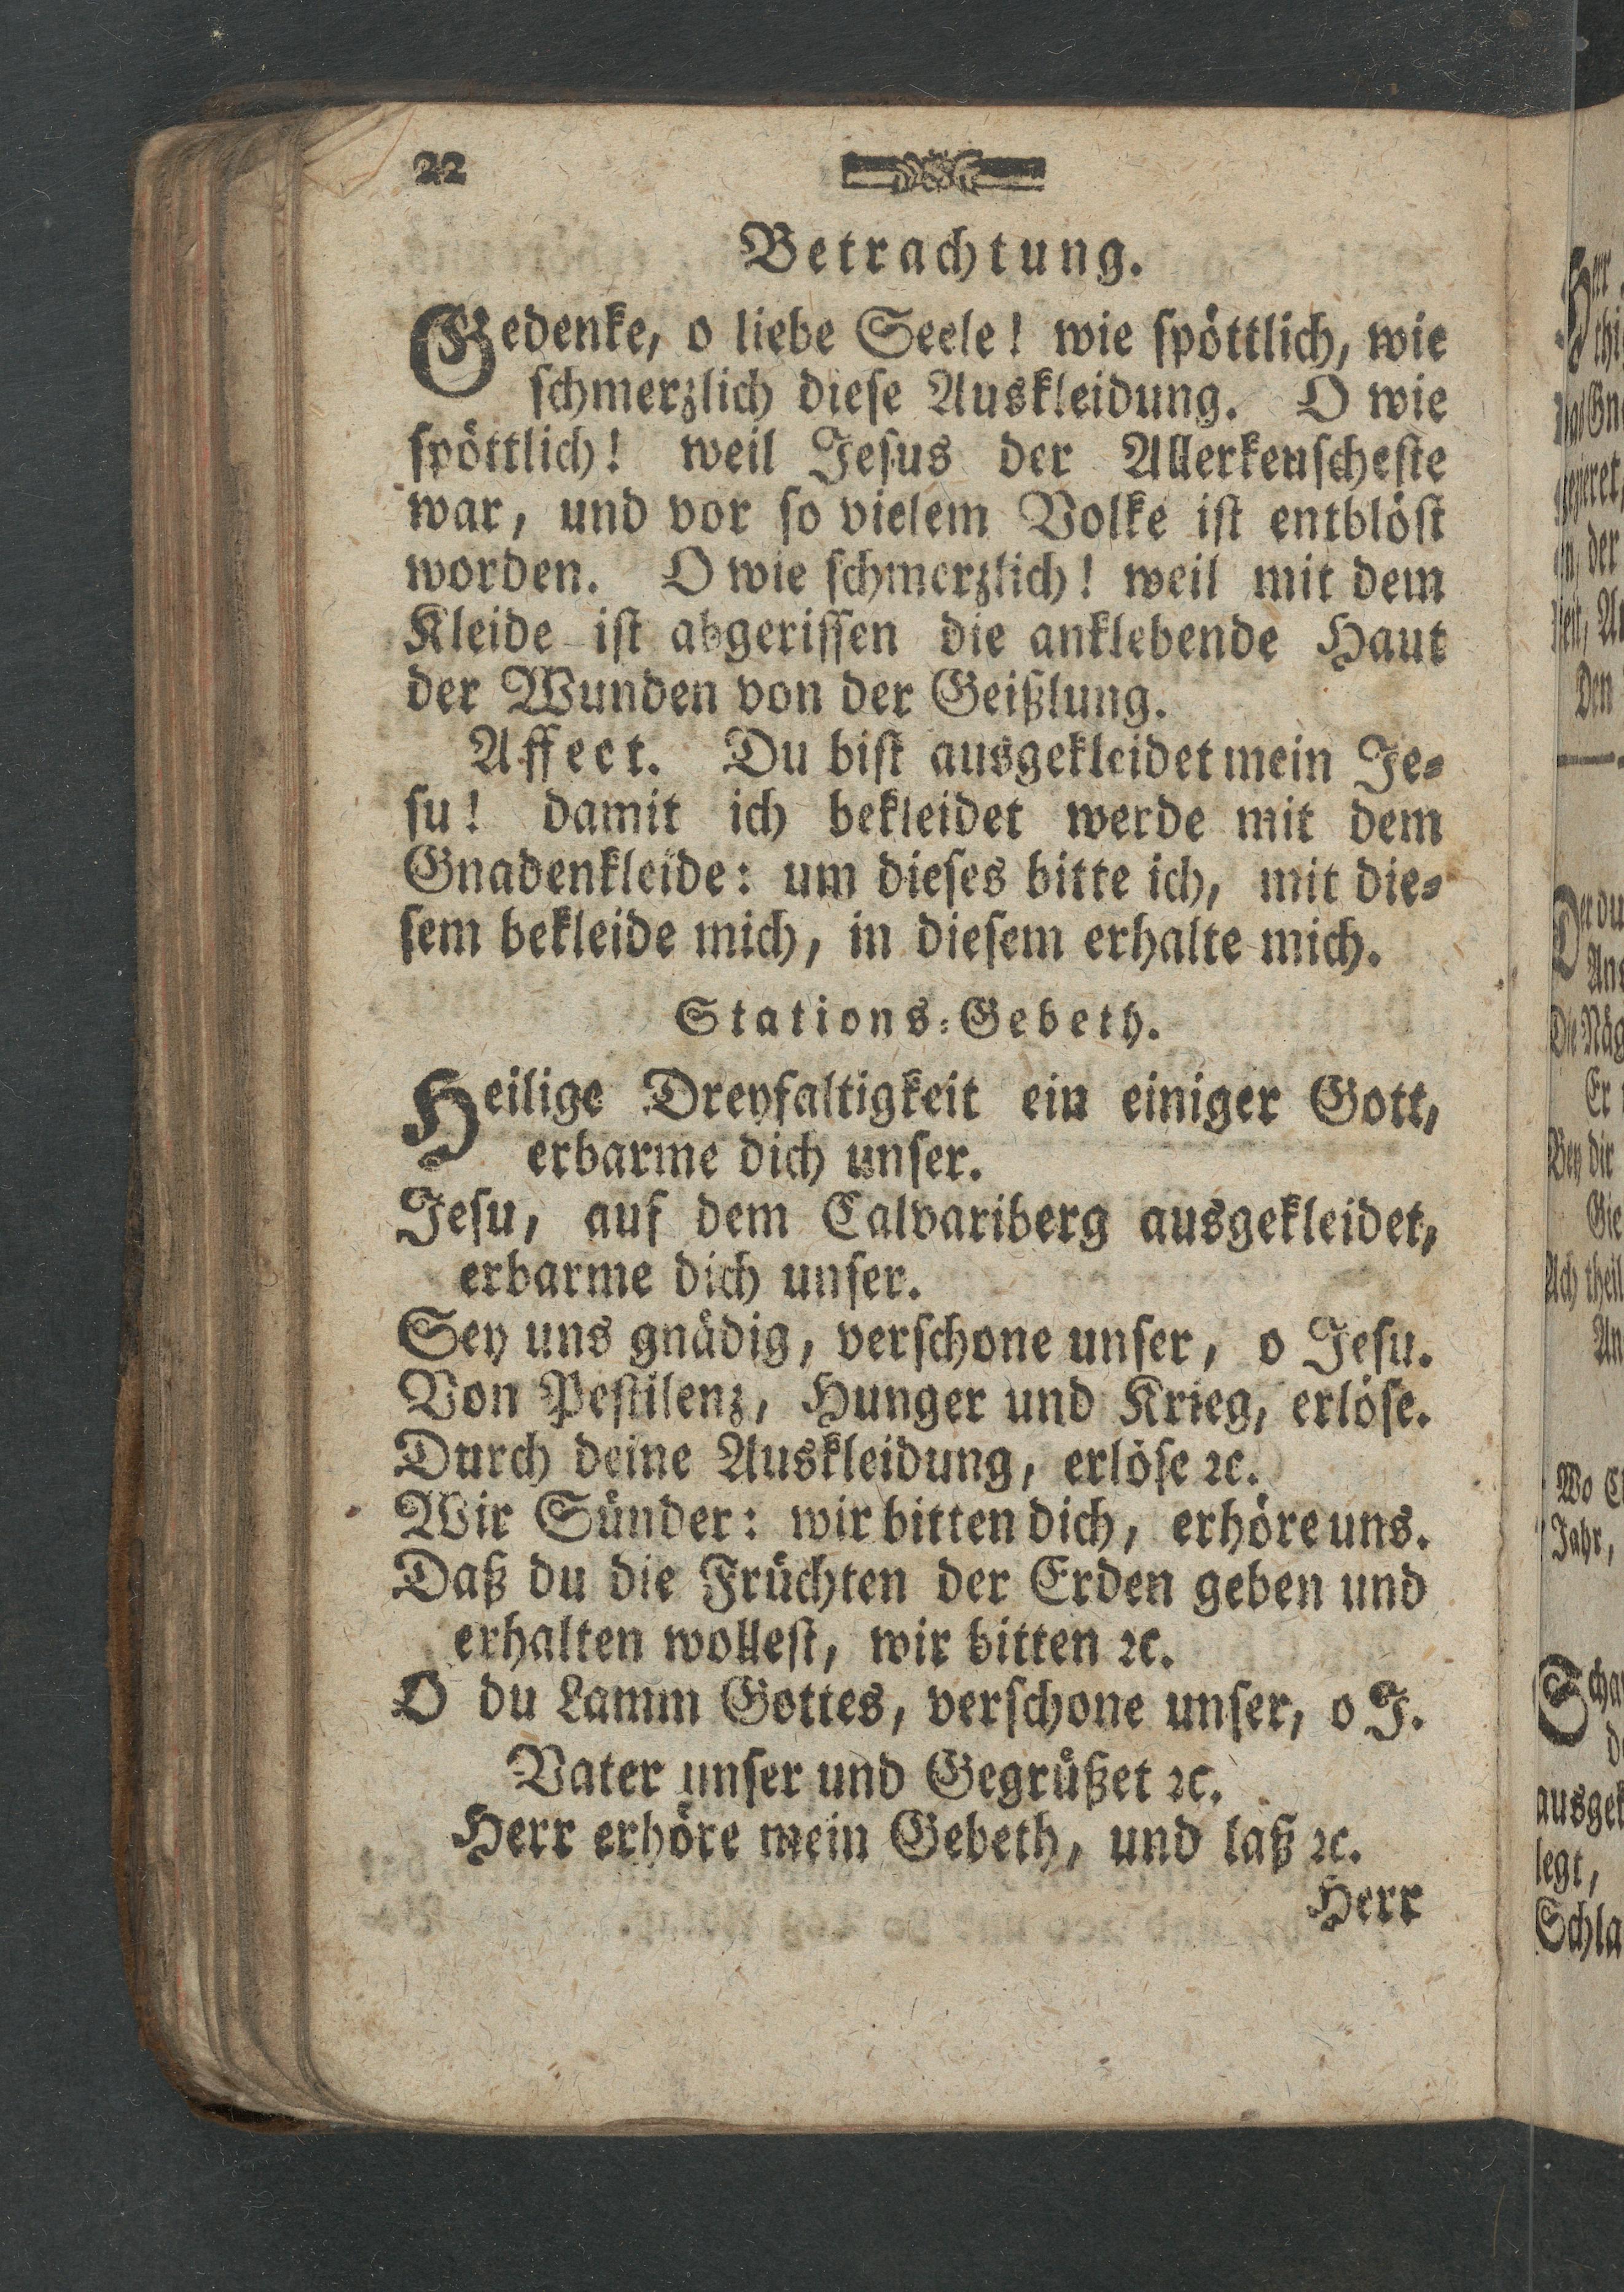 22
Betrachtung.
Gedenke, o liebe Seele! wie ſpöttlich, wie
ſchmerzlich dieſe Auskleidung. O wie
ſpöttlich! weil Jeſus der Allerkeuſcheſte
war, und vor ſo vielem Volke iſt entblöſt
worden. O wie ſchmerzlich! weil mit dem
Kleide iſt abgeriſſen die anklebende Haut
der Wunden von der Geißlung.
Affect. Du biſt ausgekleidet mein Je-
ſu! damit ich bekleidet werde mit dem
Gnadenkleide: um dieſes bitte ich, mit die-
ſem bekleide mich, in dieſem erhalte mich.
Stations-Gebeth.
Heilige Dreyfaltigkeit ein einiger Gott,
erbarme dich unſer.
Jeſu, auf dem Calvariberg ausgekleidet,
erbarme dich unſer.
Sey uns gnädig, verſchone unſer, o Jeſu.
Von Peſtilenz, Hunger und Krieg, erlöſe.
Durch deine Auskleidung, erlöſe ꝛc.
Wir Sünder: wir bitten dich, erhöre uns.
Daß du die Früchten der Erden geben und
erhalten wolleſt, wir bitten ꝛc.
O du Lamm Gottes, verſchone unſer, o J.
Vater unſer und Gegrüßet ꝛc.
Herr erhöre mein Gebeth, und laß ꝛc.
Herr
der
Den
Die
Er
Bey dir
Ach
Wo
Jahr,
legt,